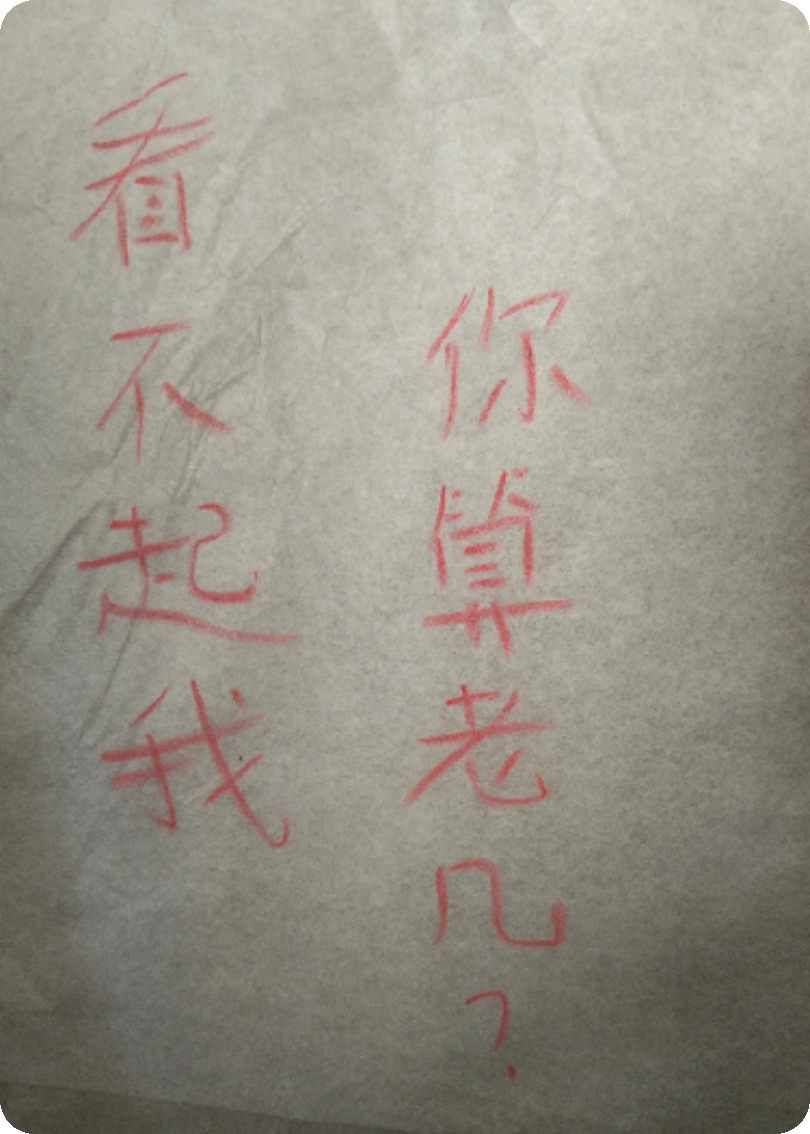 看不起我
你算老几?